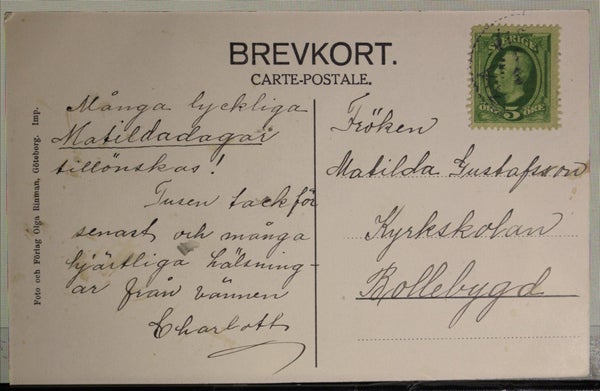 BREVKORT.
CARTE-POSTALE.
Många lyckliga
Matildadagar
tillönskas!
Tusen tack för
senast och många
hjärtliga hälsning-
ar från vännen
Charlott
Fröken
Matilda Gustafsson
Kyrkskolan
Bollebygd
SVERIGE
ÖRE 5 ÖRE
Foto och Förlag Olga Rinman, Göteborg. Imp.